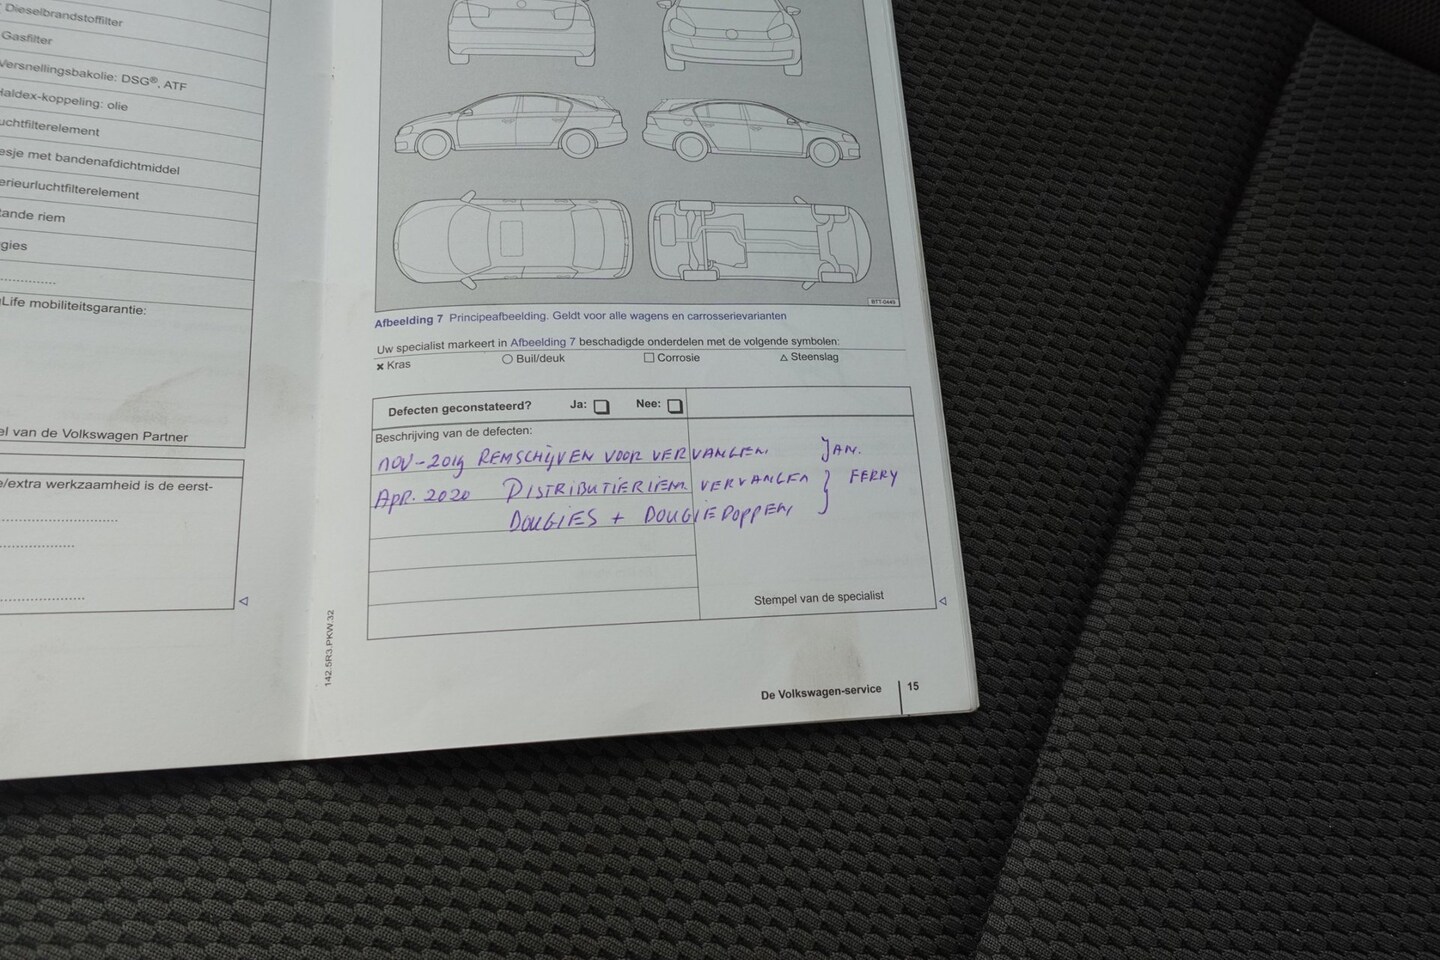 Dieselbrandstoffilter
Gasfilter
Versnellingsbakolie: DSG®, ATF
Haldex-koppeling: olie
uchtfilterelement
esje met bandenafdichtmiddel
erieurluchtfilterelement
tande riem
gies
Life mobiliteitsgarantie:
el van de Volkswagen Partner
e/extra werkzaamheid is de eerst-
BT1-0449
Afbeelding 7 Principeafbeelding. Geldt voor alle wagens en carrosserievarianten
Uw specialist markeert in Afbeelding 7 beschadigde onderdelen met de volgende symbolen:
× Kras ○ Buil/deuk □ Corrosie △ Steenslag
Defecten geconstateerd? Ja: Nee:
Beschrijving van de defecten:
NOV-2019 REMSCHIJVEN VOOR VERVANGEN. JAN.
APR. 2020 DISTRIBUTIERIEM VERVANGEN } FERRY
BOUGIES + BOUGIEDOPPEN,
Stempel van de specialist
142.5R3.PKW.32
De Volkswagen-service 15